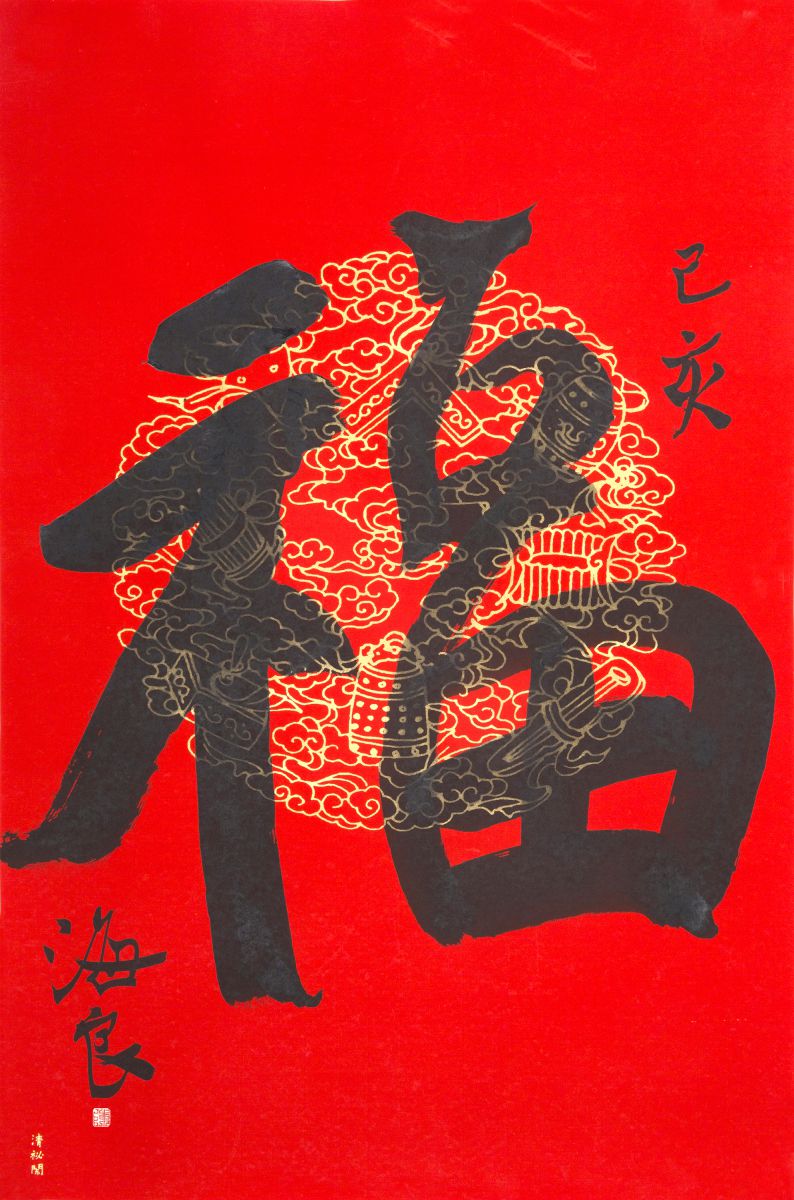 己亥
福
海良
清祕閣